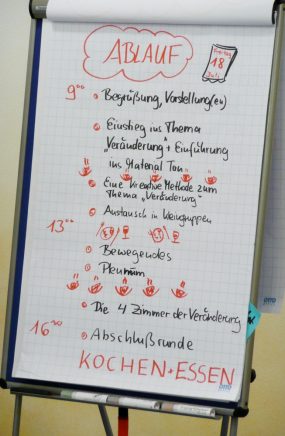 ABLAUF
Freitag
18
Juli
9⁰⁰ Begrüßung, Vorstellung(en)
Einstieg ins Thema
"Veränderung" + Einführung
ins Material Ton
Eine kreative Methode zum
Thema „Veränderung"
Austausch in Kleingruppen
13⁰⁰
Bewegendes
Plenum
Die 4 Zimmer der Veränderung
16⁰⁰ Abschlußrunde
KOCHEN + ESSEN